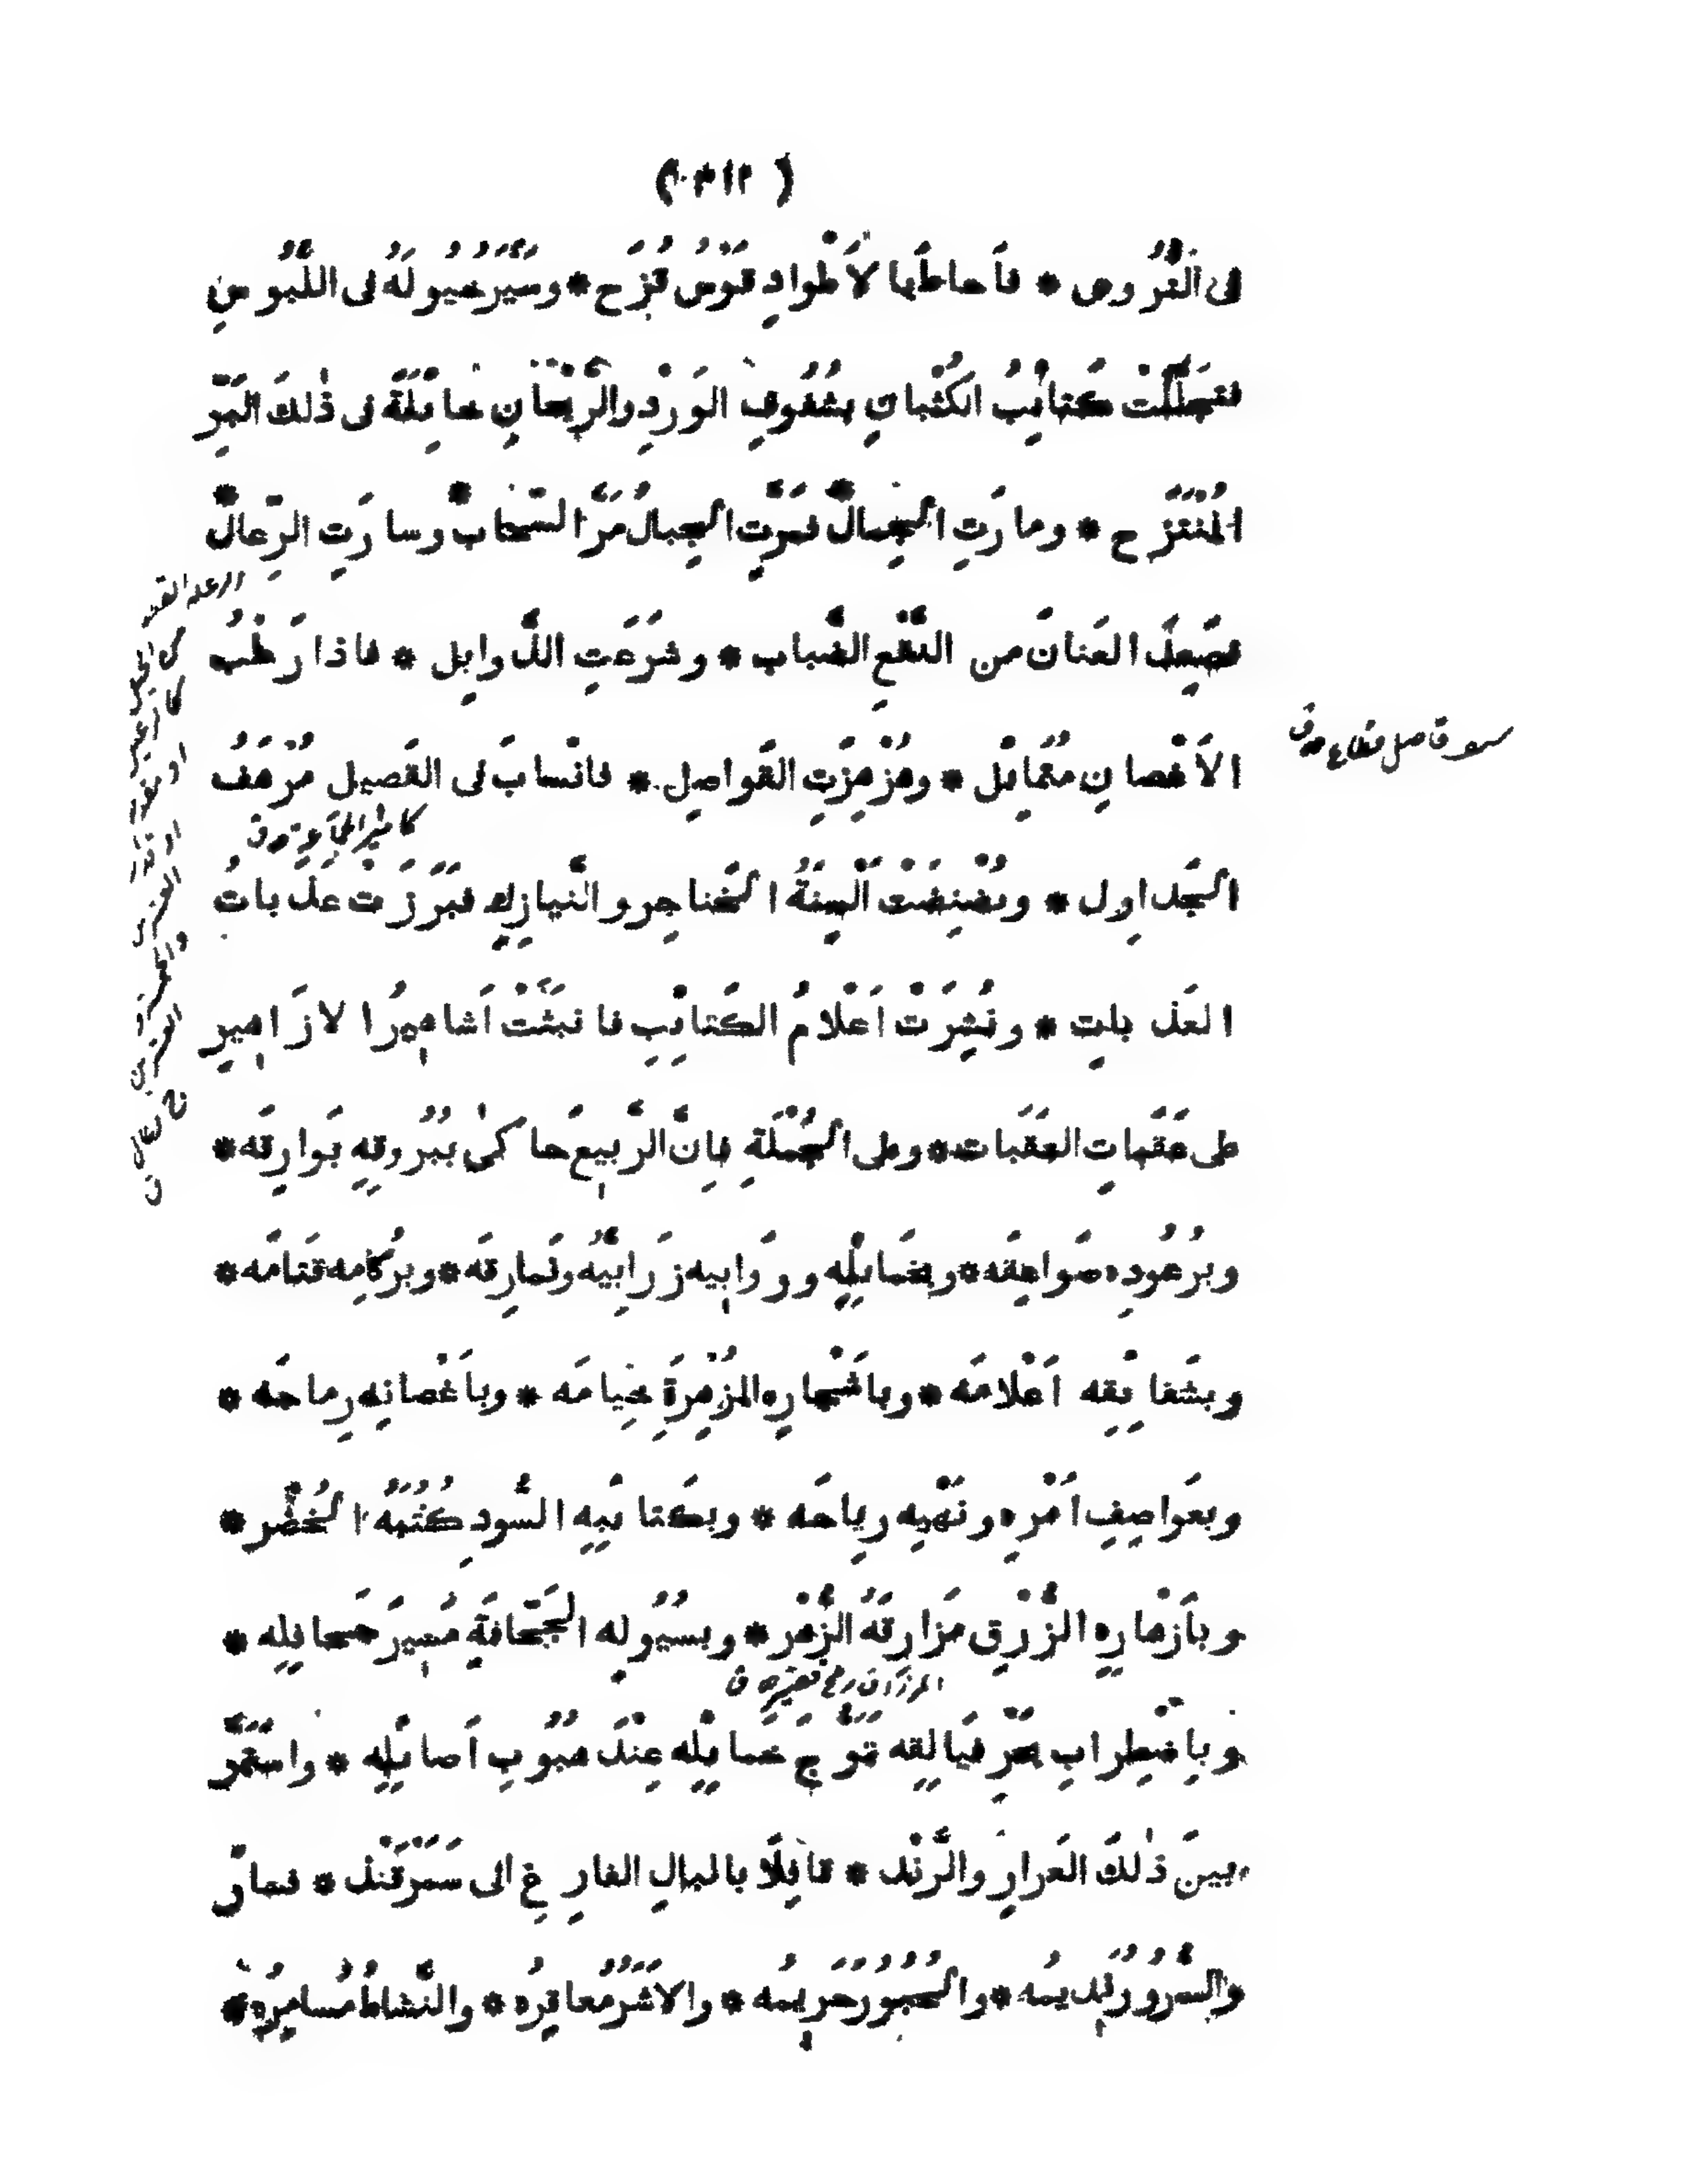 (٣١٢)
فى الغُرُوض * فاَحاطَ بالاَطْوادِ قَوْسُ قُزَح * وسَيَّرَ خُيُولَهُ فى اللُّبُوسِ
فتجلَّلَتْ كَتائِبُ الكُثْبانِ بشُفُوفِ الوَرْدِ والرَّيْحانِ خائِلَةً فى ذٰلكَ المَرْ
المُنْتَزَح * ومارَتِ الجِمالْ فمَرَّتِ الجِبالُ مَرَّ السَّحابْ وسارَتِ الرِّعالْ
فصَعِدَ العَنانَ من النَّقْعِ الضَّباب * وشرَعَتِ الذَّوابِل * فاذا رَطْبُ
الاَغْصانِ مُتَمايِل * وهُزْهِزَتِ القَواصِل * فانْسابَ فى القَصِيل مُرْهَفُ
الجَداوِل * ونُضْنِضَتْ اَلْسِنَةُ الخَناجِر والنَّيازِك فبَرَزَتْ عَذَباتُ
العَذَباتِ * ونُشِرَتْ اَعْلامُ الكَتائِبِ فانبَثَّتْ اَشاهِيرُ الازَاهِير
على عَقَباتِ العَقَبات * وعلى الجُمْلَةِ فاِنَّ الرَّبِيعَ حاكىٰ ببُرُوقِهِ بَوارِقَه *
وبرُعُودِه صَواعِقَه * وبخَمائِلِه ورَوابِيه زَرَابِيَّهُ ونَمارِقَه * وبرُكامِه قَتامَه *
وبشَقائِقِه اَعْلامَه * وباَشْجارِه المُزْهِرَةِ خِيامَه * وباَغْصانِه رِماحَه *
وبعَواصِفِ اَمْرِه ونَهْيِه رِياحَه * وبكَتائِبِه السُّودِ كُثُبَهُ الخُضْر *
وباَزْهارِه الزُّرْقِ مَزارِقَهُ الزُّهْر * وبسُيُولِه الجَحَّافَةِ مَسِيرَ جَحافِلِه *
وباضْطِرابِ بَحْرِ فَيالِقِه تَمَوُّجَ خَمائِلِه عِنْدَ هُبُوبِ اَصائِلِه * واسْتَمَرَّ
بينَ ذٰلكَ العَرارِ والرَّنْد * قافِلًا بالبالِ الفارِغِ الى سَمَرْقَنْد * فسارْ
والسُّرُورُ نَدِيمُه * والحُبُورُ حَرِيمُه * والاَشَرُ مُعاقِرُه * والنَّشاطُ مُسامِرُه *